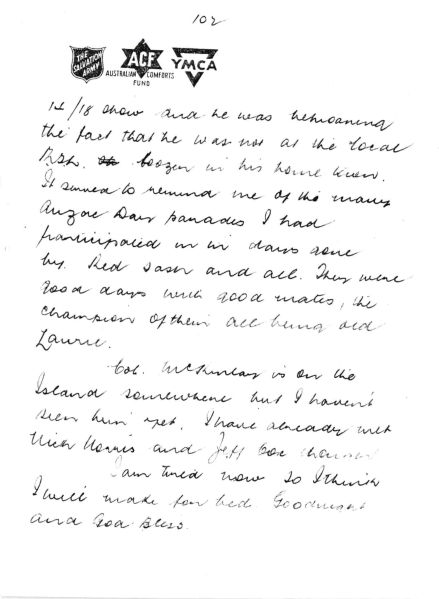 102
THE SALVATION ARMY
ACF
AUSTRALIAN COMFORTS FUND
YMCA
14/18 show and he was bemoaning
the fact that he was not at the local
RSL. boozer in his home town.
It seemed to remind me of the many
Anzac Day parades I had
participated in in days gone
by. Red sash and all. They were
good days with good mates, the
champion of them all being old
Laurie.
Col. McKinlay is on the
Island somewhere but I haven't
seen him yet. I have already met
Nick Norris and Jeff Cox
I am tired now so I think
I will make for bed. Goodnight
and God Bless.